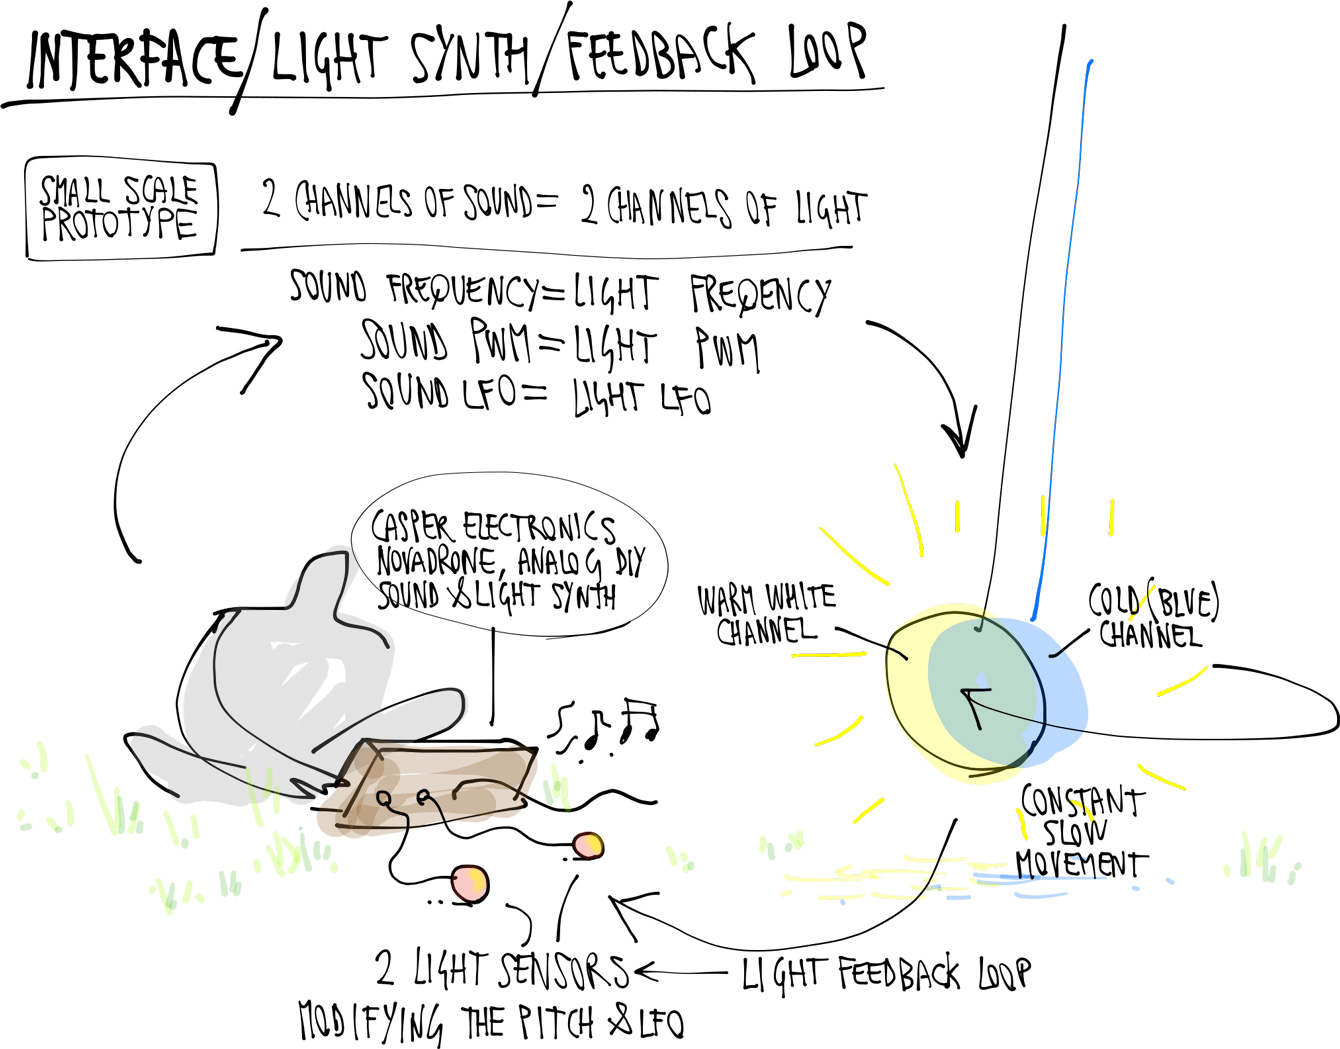 INTERFACE/LIGHT SYNTH/FEEDBACK LOOP
SMALL SCALE
PROTOTYPE
2 CHANNELS OF SOUND= 2 CHANNELS OF LIGHT
SOUND FREQUENCY=LIGHT FREQENCY
SOUND PWM=LIGHT PWM
SOUND LFO= LIGHT LFO
CASPER ELECTRONICS
NOVADRONE, ANALOG DIY
SOUND & LIGHT SYNTH
WARM WHITE
CHANNEL
COLD (BLUE)
CHANNEL
CONSTANT
SLOW
MOVEMENT
2 LIGHT SENSORS
MODIFYING THE PITCH & LFO
LIGHT FEEDBACK LOOP